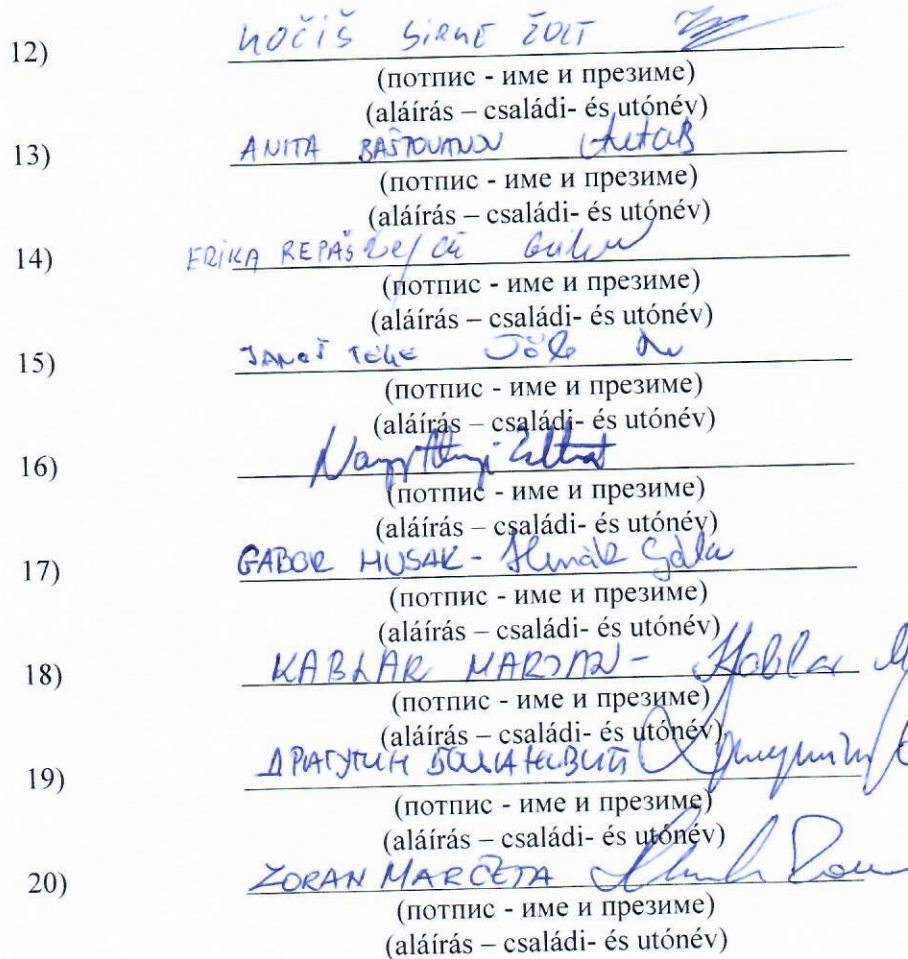 12) KOČIŠ SIRKE ŽOLT
(потпис - име и презиме)
(aláírás – családi- és utónév)
13) ANITA BAŠTOVANOV
(потпис - име и презиме)
(aláírás – családi- és utónév)
14) ERIKA REPÁS
(потпис - име и презиме)
(aláírás – családi- és utónév)
15) JANOŠ TEKE
(потпис - име и презиме)
(aláírás – családi- és utónév)
16) Nagy
(потпис - име и презиме)
(aláírás – családi- és utónév)
17) GABOR HUSAK -
(потпис - име и презиме)
(aláírás – családi- és utónév)
18) KABLAR MARJAN - Kablar
(потпис - име и презиме)
(aláírás – családi- és utónév)
19) ДРАГУТИН
(потпис - име и презиме)
(aláírás – családi- és utónév)
20) ZORAN MARČETA
(потпис - име и презиме)
(aláírás – családi- és utónév)